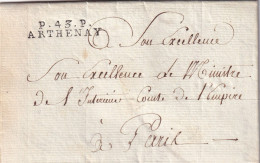 P.43.P.
ARTHENAY
A Son Excellence
Son Excellence Le Ministre
de l'Interieur Comte de l'Empire
à Paris